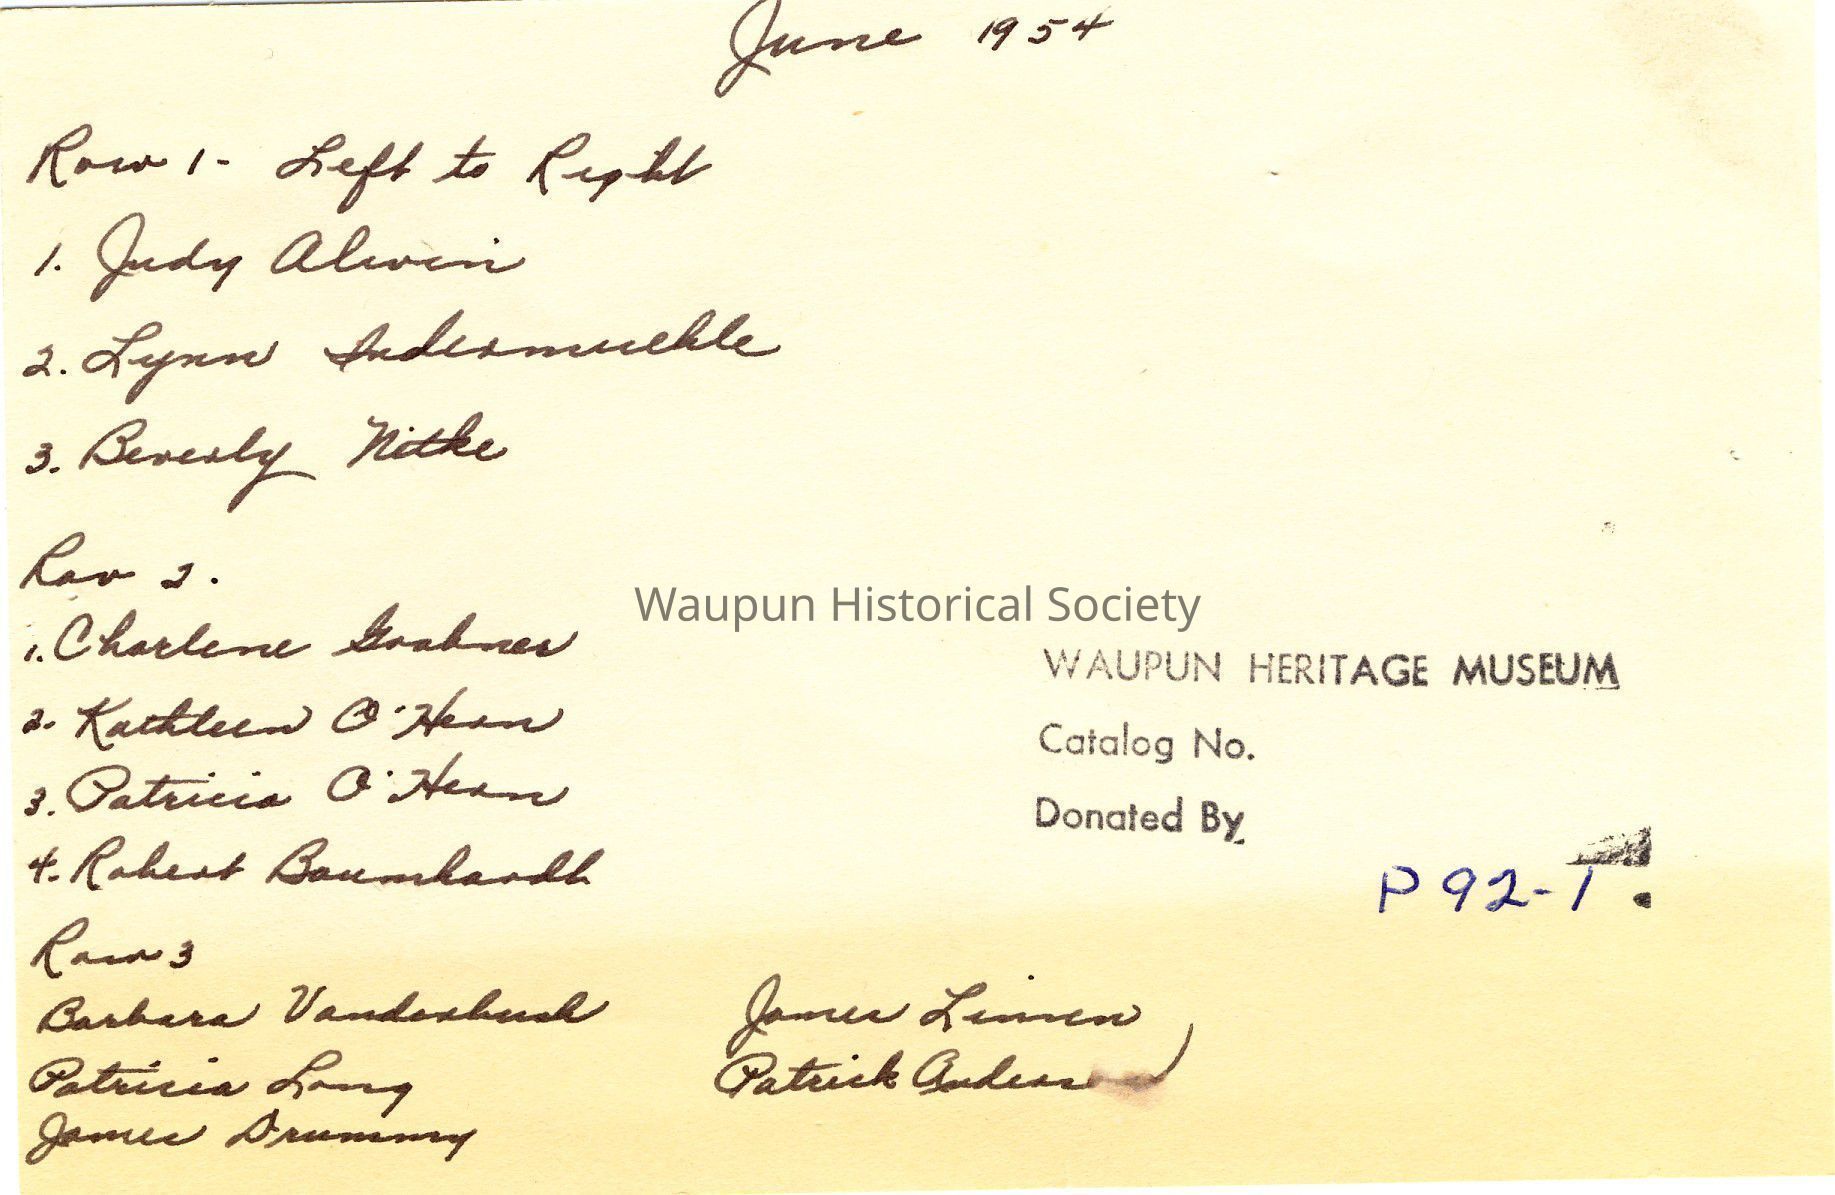 June 1954
Row 1- Left to Right
1. Judy Alwin
2. Lynn Indermuehle
3. Beverly Nitke
Row 2.
1. Charlene Grabner
2. Kathleen O'Hern
3. Patricia O'Hern
4. Robert Baumhardt
Row 3
Barbara Vanderbush
Patricia Long
James Drummy
James Linsen
Patrick
Waupun Historical Society
WAUPUN HERITAGE MUSEUM
Catalog No.
Donated By
P92-1